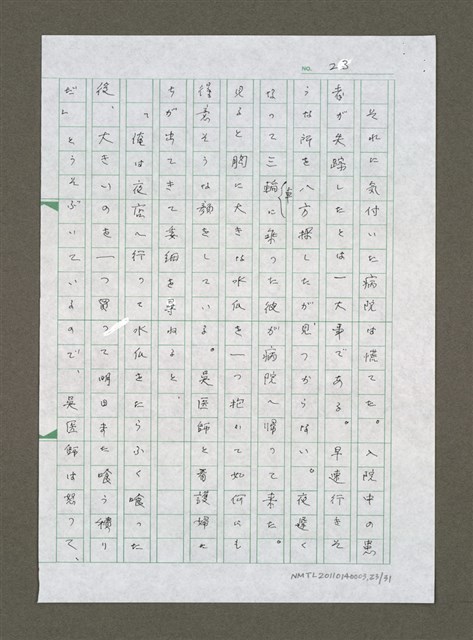 NO. 23
それに気付いた病院は慌てた。入院中の患
者が失踪したとは一大事である。早速行きそ
うな所を八方探したが見つからない。夜遅く
なって三輪車に乗った彼が病院へ帰って来た。
見ると胸に大きな水瓜を一つ抱いて如何にも
得意そうな顔をしている。呉医師と看護婦た
ちが出てきて委細を尋ねると、
「俺は夜店へ行って水瓜をたらふく喰った
後、大きいのを一つ買って明日また喰う積り
だ」とうそぶいているので、呉医師は怒って、
NMTL20110140009,23/31